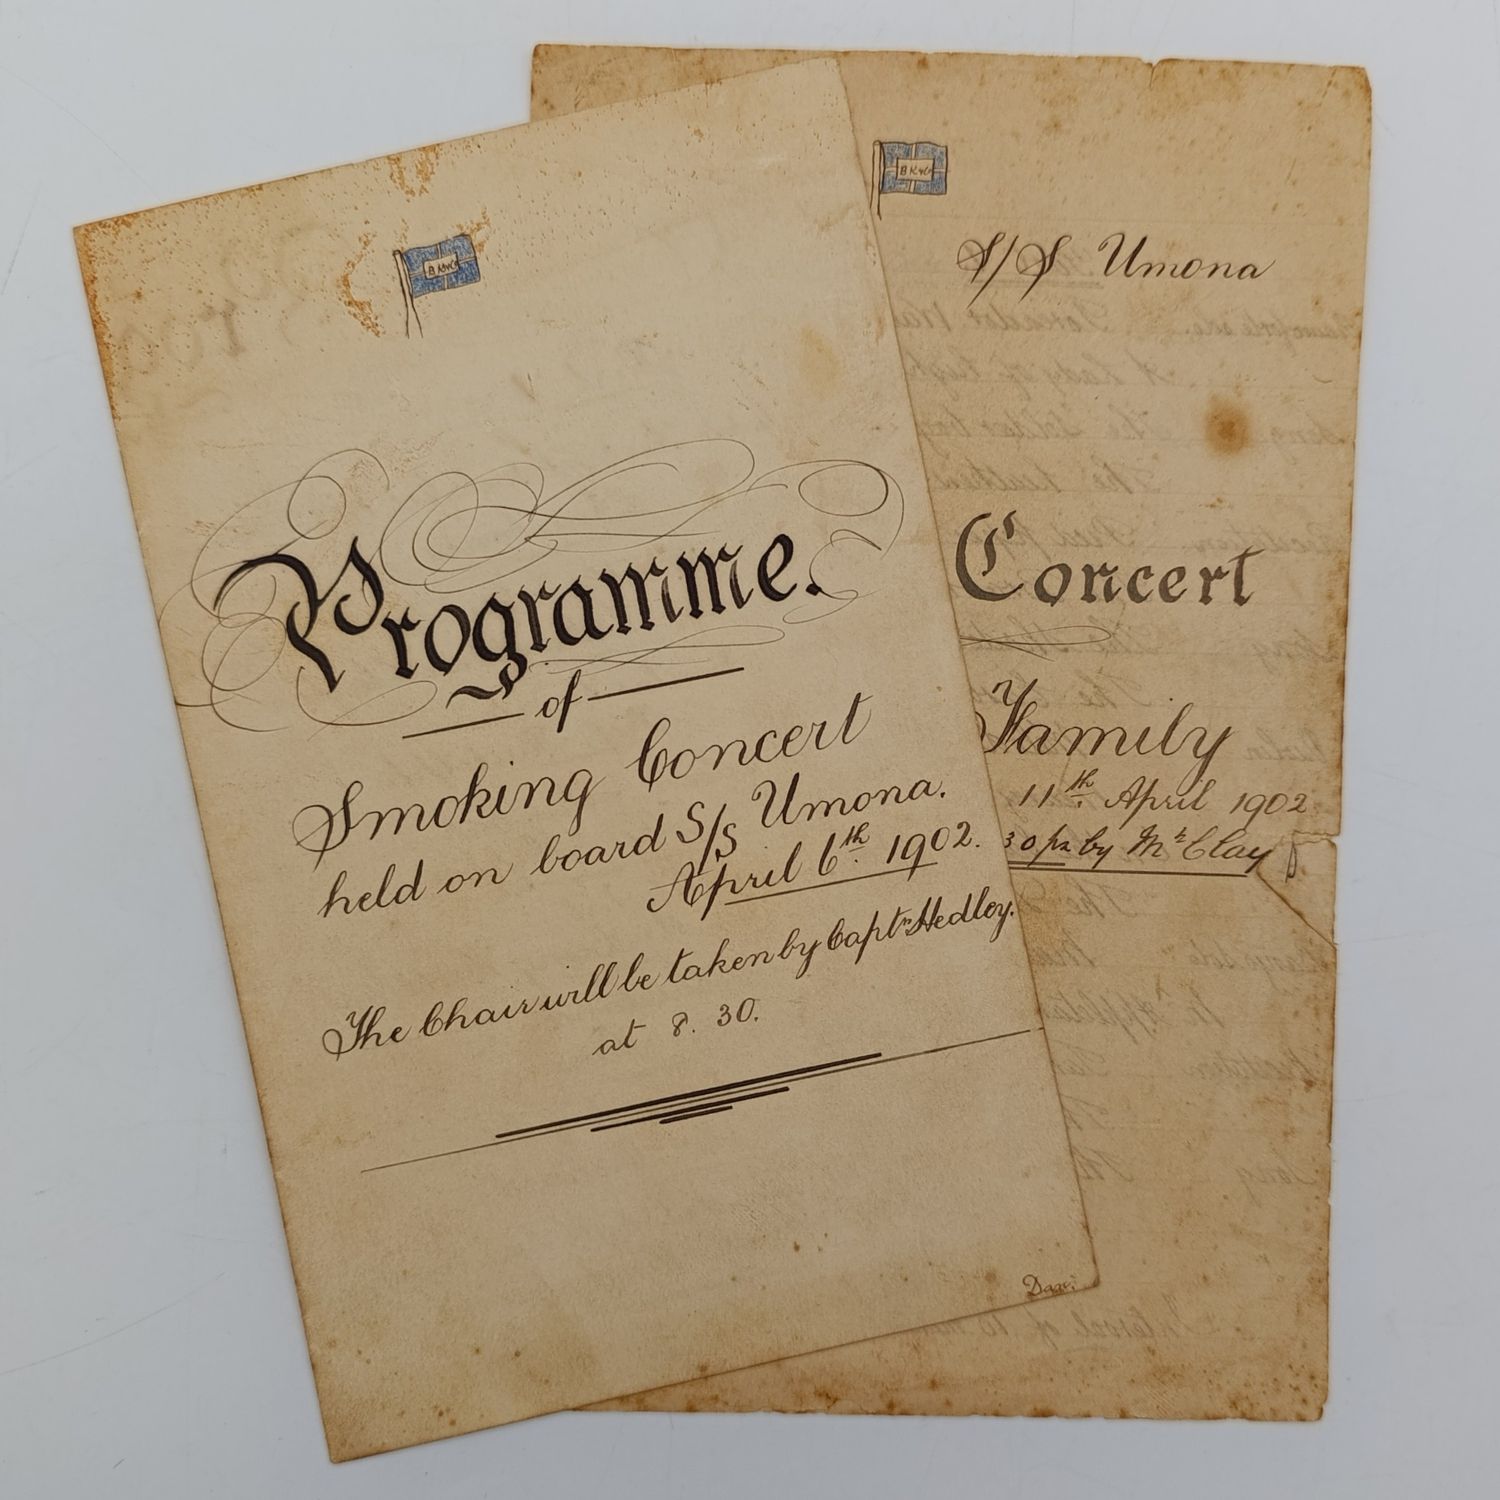 Programme.
of
Smoking Concert
held on board S/S Umona.
April 6th 1902.
The Chair will be taken by Captn Hedley.
at 8.30.
S/S Umona
Concert
Family
11th April 1902
30 by Mr Clay